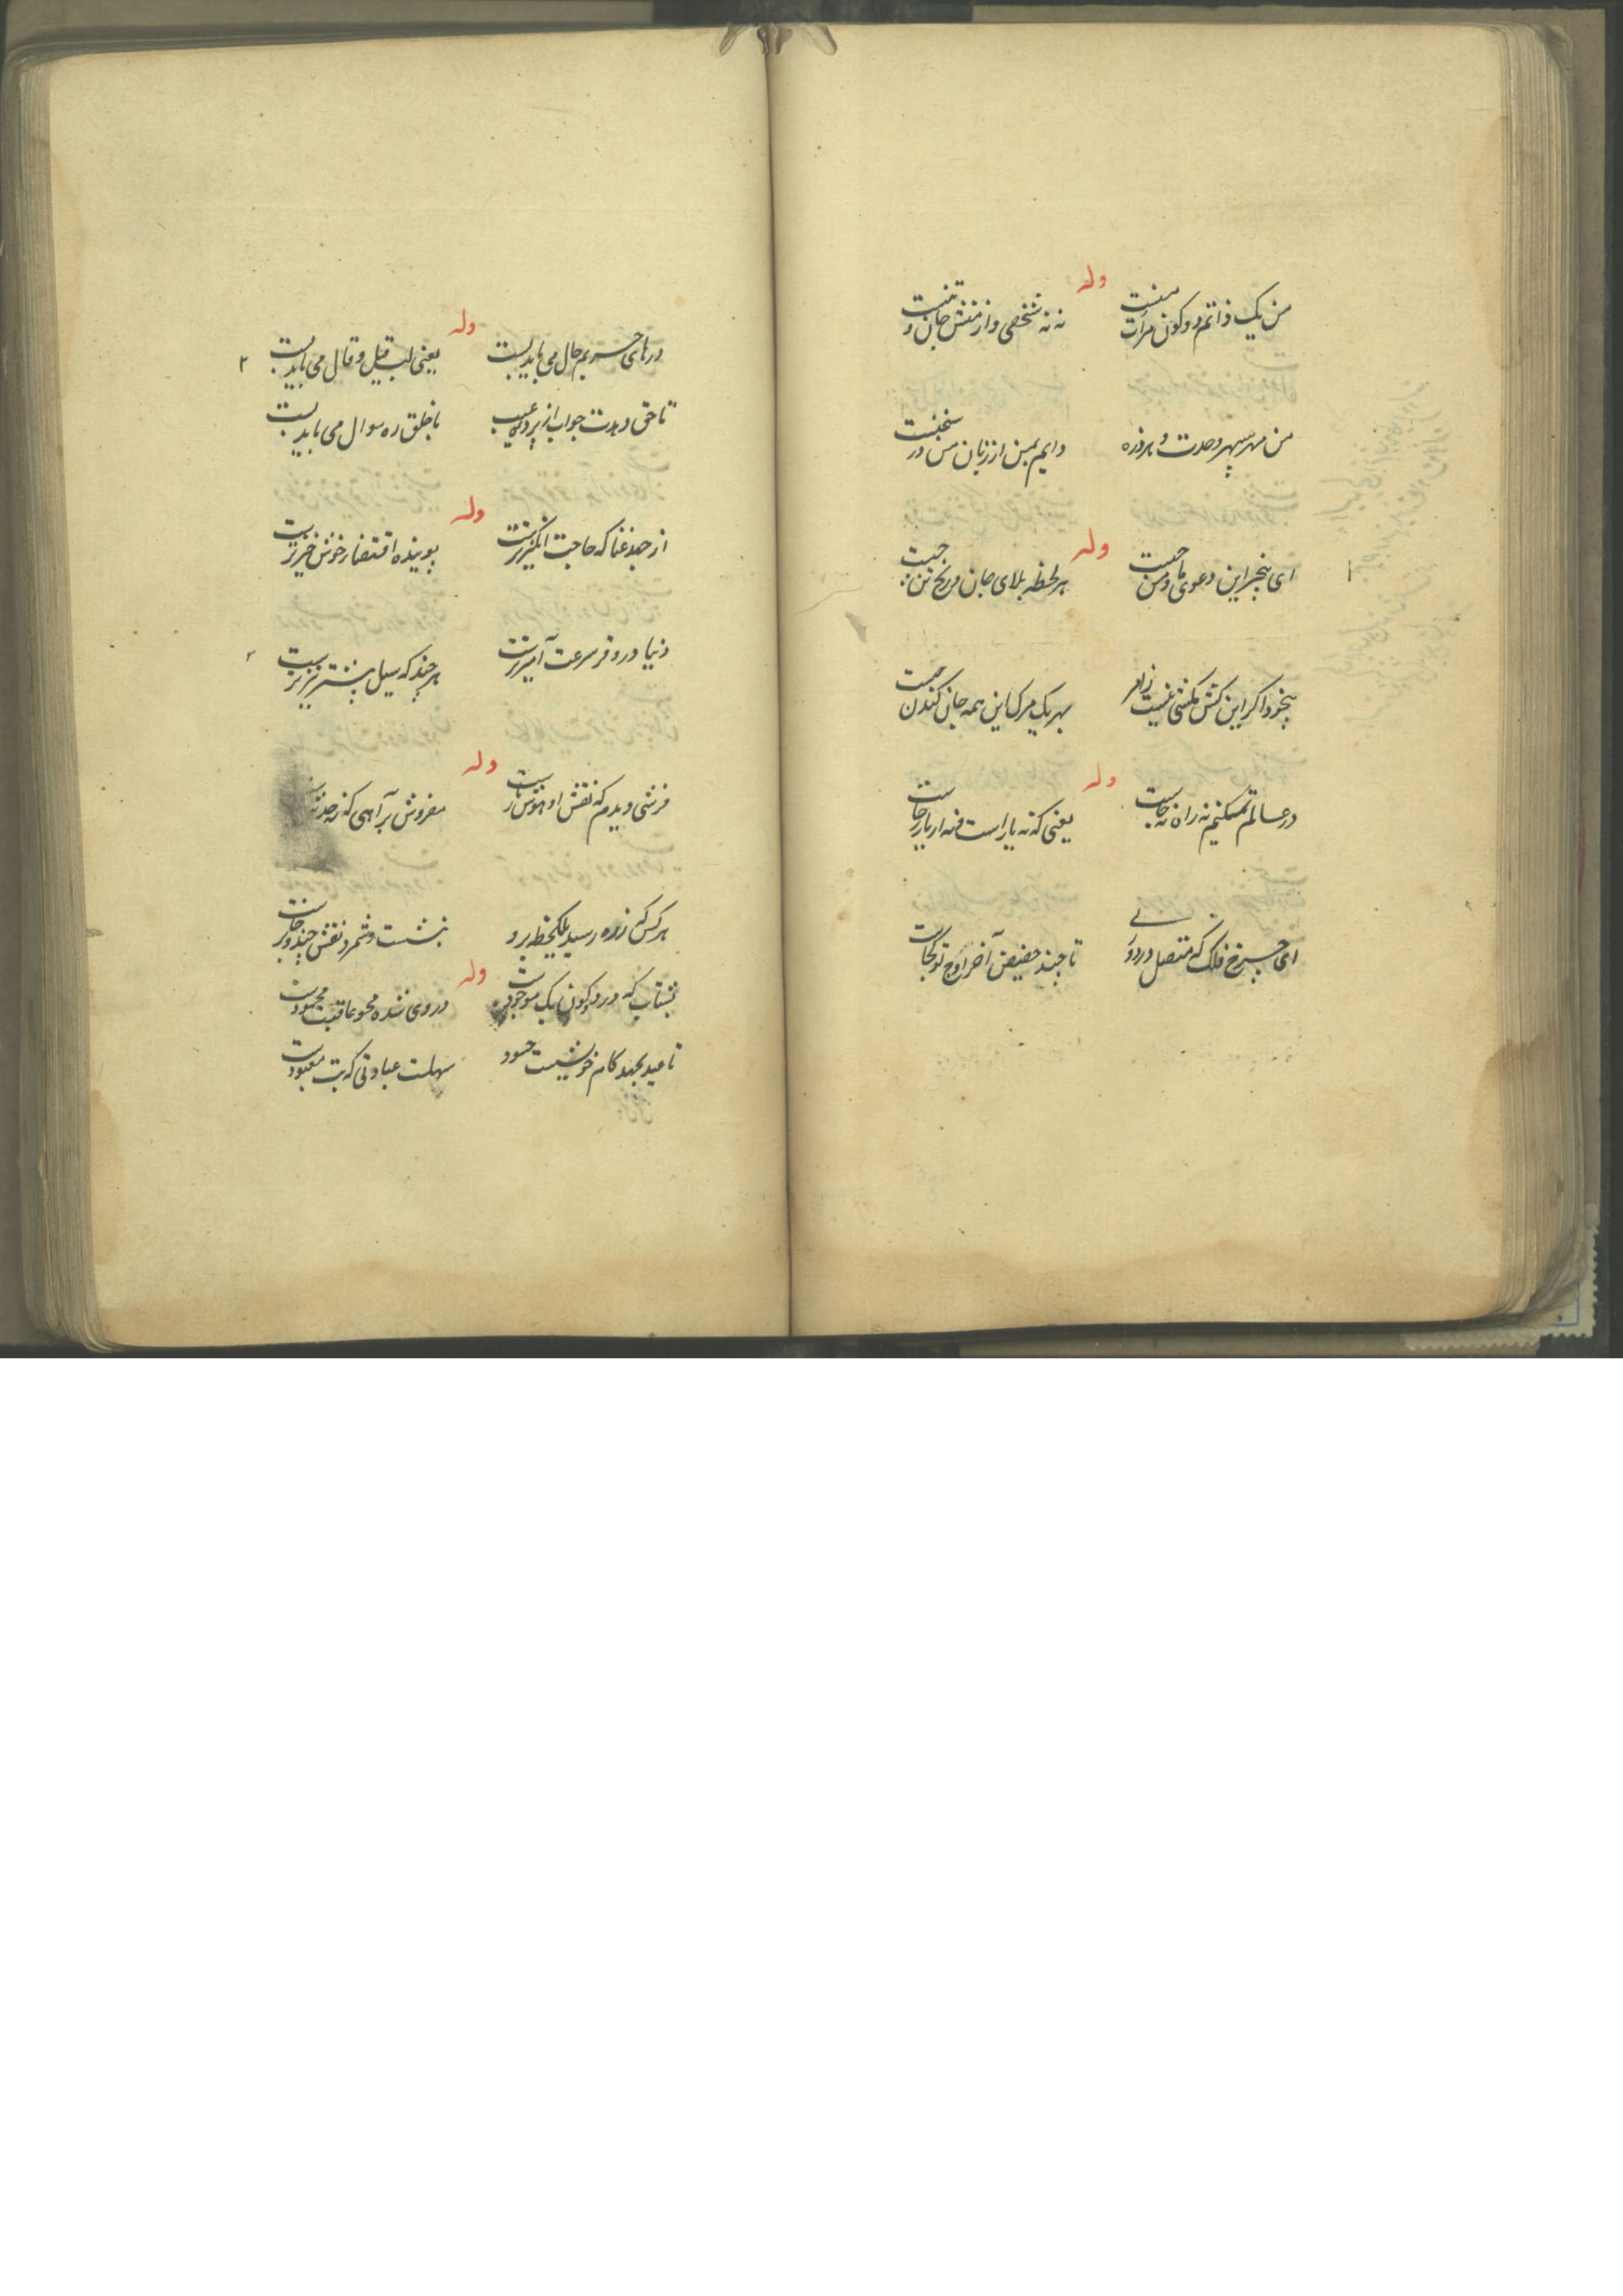 وله
من یک ذاتم دو کون مرآت منست
نه نه شخصی و از منش جان و تنست
من مهر سپهر وحدت و هر ذره
دایم بمن از زبان من در سخنست
وله
ای بیخبر این دعوی ما و من چیست
هر لحظه بلای جان و رنج تن چیست
بیخود اگر این کش مکشی نیست ترا
بهر یک مرک این همه جان کندن چیست
وله
در عالم تمکینم نه راه نه جاست
یعنی که نه یار است و نه
ای چرخ فلک که متصل در دوری
تا چند حضیض آخر اوج تو کجاست
وله
درهای حریم حال می باید بست
یعنی لب قیل و قال می باید بست
تا حق دهدت جواب از پرده غیب
با خلق ره سوال می باید بست
وله
از جهد غنا که حاجت انگیزترست
پوینده افتقار خوش خیزترست
دنیا در وقر سرعت آمیزترست
هر چند که سیل بیشتر تیزترست
وله
فرشی دیدم که نقش او هوش رباست
مفروش بر آهی که ز حد
هر کس که ز ره رسید یکلحظه برو
بنشست و شمرد نقش چند و برخاست
وله
بشتاب که در دو کون یک موجودست
در وی شده محو عاقبت محمودست
تا عید بجهد کام خویشست حسود
سهلست عبادتی که بت معبودست